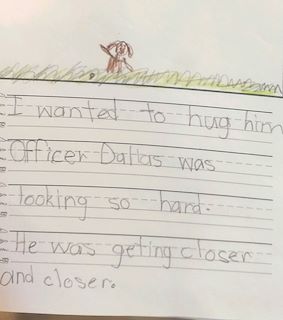 I wanted to hug him
Officer Dallas was
looking so hard.
He was geting closer
and closer.